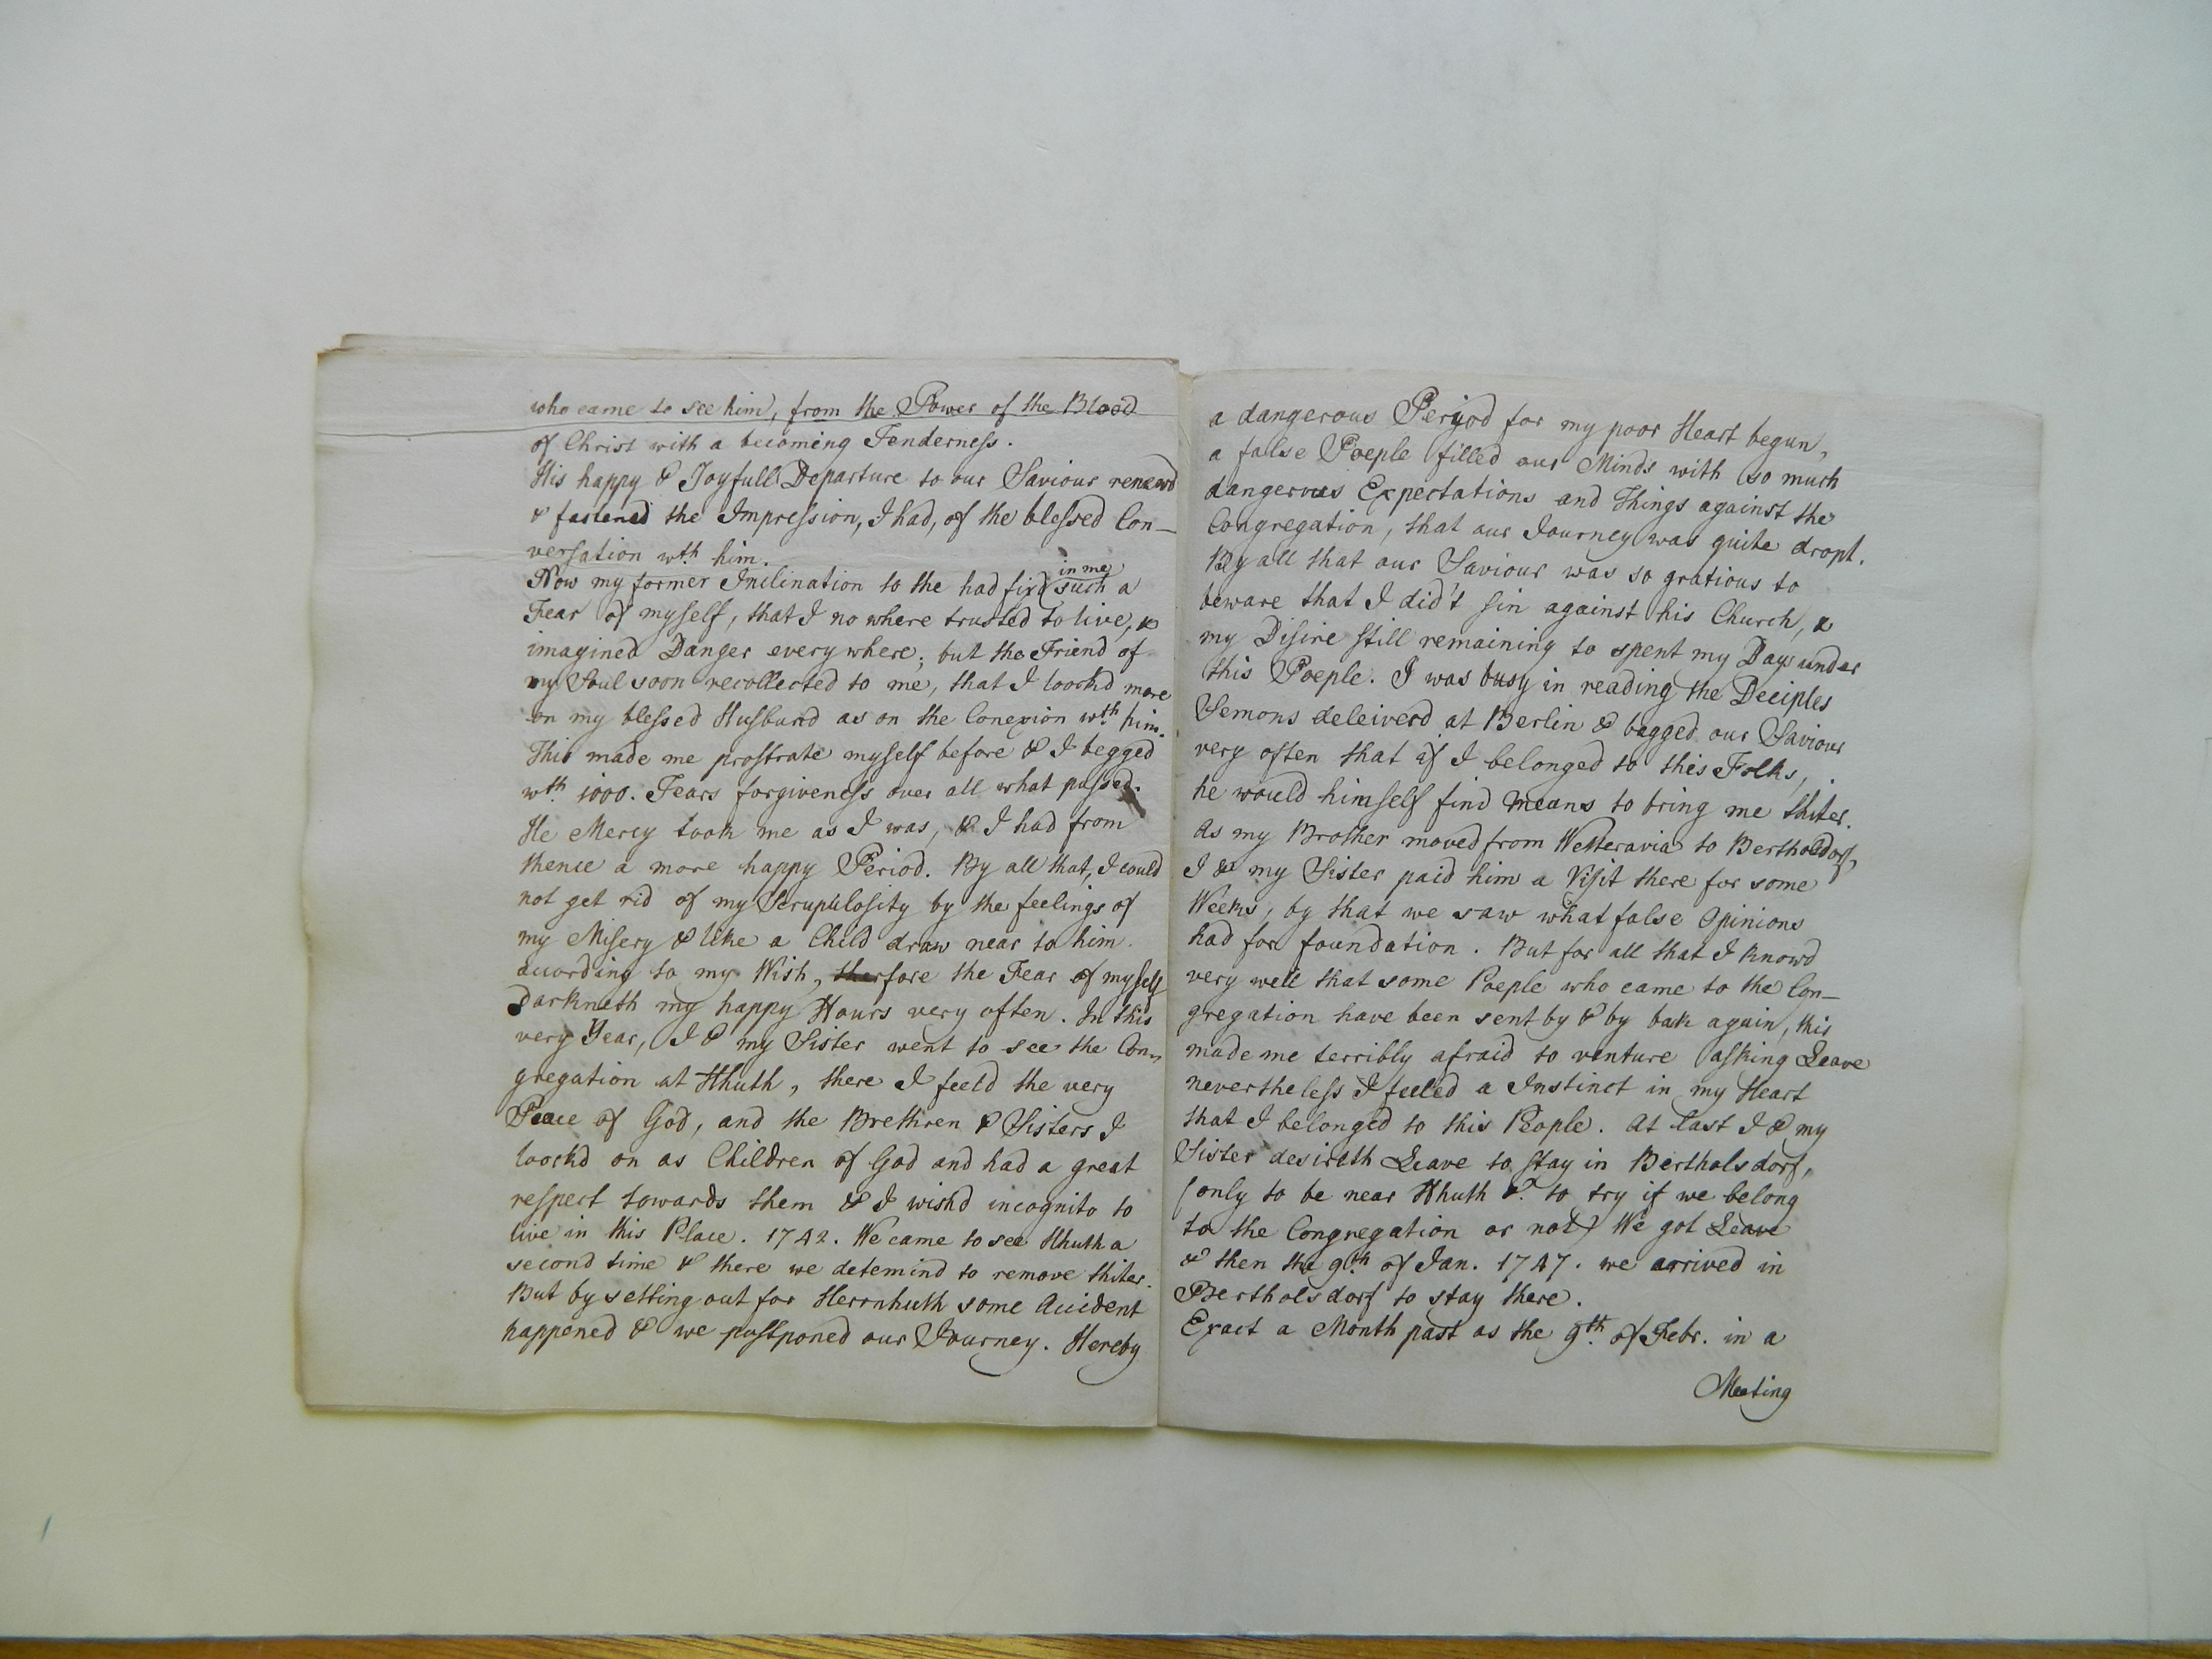 who came to see him, from the Power of the Blood
of Christ with a becoming Tenderness.
His happy & Joyfull Departure to our Saviour renewd
& fastened the Impression, I had, of the blessed Con-
versation wth. him.
in me
Now my former Inclination to the had fixd such a
Fear of myself, that I no where trusted to live, &
imagined Danger every where; but the Friend of
my Soul soon recollected to me, that I loockd more
on my blessed Husband as on the Conexion wth him.
This made me prostrate myself before & I begged
wth. 1000. Tears forgiveness over all what passed.
He Mercy took me as I was, & I had from
thence a more happy Period. By all that, I could
not get rid of my Scrupulosity by the feelings of
my Misery & like a Child draw near to him.
according to my Wish, therfore the Fear of myself
Darkneth my happy Hours very often. In this
very Year, I & my Sister went to see the Con-
gregation at Hhuth, there I feeld the very
Peace of God, and the Brethren & Sisters I
loockd on as Children of God and had a great
respect towards them & I wishd incognito to
live in this Place. 1742. We came to see Hhuth a
second time & there we detemind to remove thiter.
But by setting out for Herrnhuth some Accident
happened & we postponed our Journey. Hereby
a dangerous Periyod for my poor Heart begun,
a false Poeple filled our Minds with so much
dangerous Expectations and Things against the
Congregation, that our Journey was quite dropt.
By all that our Saviour was so gratious to
beware that I did't sin against his Church, &
my Disire still remaining to spent my Days under
this Poeple. I was busy in reading the Deciples
Semons deleiverd at Berlin & bagged our Saviour
very often that if I belonged to this Folks,
he would himself find means to bring me thiter.
As my Brother moved from Wetteravia to Bertholdorf,
I & my Sister paid him a Visit there for some
Weeks, by that we saw what false Opinions
had for foundation. But for all that I knowd
very well that some Poeple who came to the Con-
gregation have been sent by & by bak again, this
made me terribly afraid to venture asking Leave
nevertheless I feeled a Instinct in my Heart
that I belonged to this People. At last I & my
Sister desireth Leave to stay in Bertholsdorf,
(only to be near Hhuth &. to try if we belong
to the Congregation or not) We got Leave
& then the 9th of Jan. 1747. we arrived in
Bertholsdorf to stay there.
Exact a Month past as the 9th. of Febr. in a
Meeting